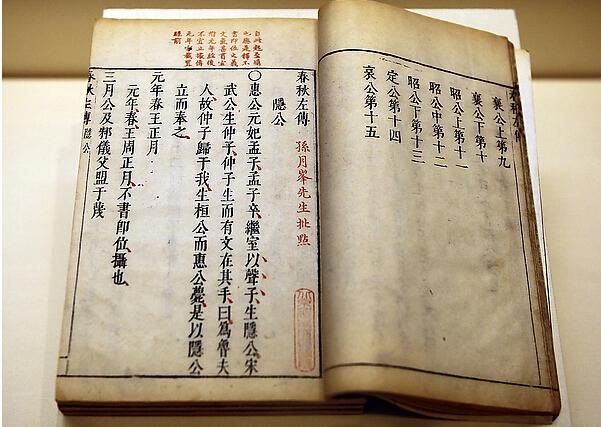 春秋左傳
襄公上第九
襄公下第十
昭公上第十一
昭公中第十二
昭公下第十三
定公第十四
哀公第十五
書即位之義
春秋左傳 孫月峯先生批點
隱公
〇惠公元妃孟子孟子卒繼室以聲子生隱公宋
武公生仲子仲子生而有文在其手曰爲魯夫
人故仲子歸于我生桓公而惠公薨是以隱公
立而奉之
元年春王正月
元年春王周正月不書即位攝也
三月公及邾儀父盟于蔑
春秋左傳 隱公